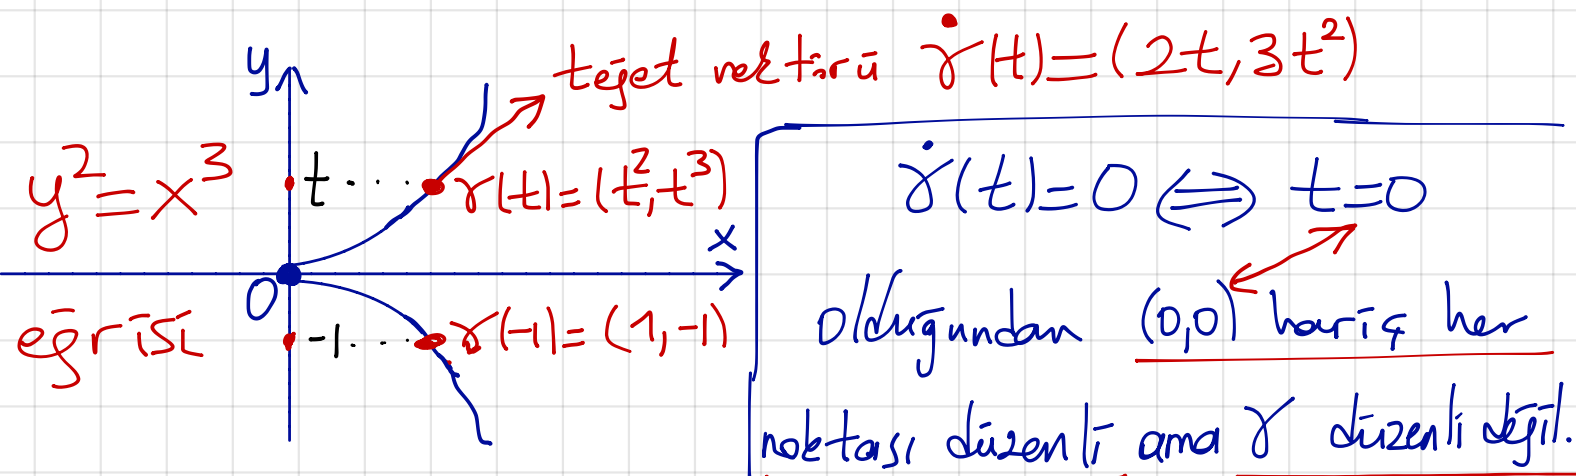 teğet vektörü γ̇(t)=(2t,3t²)
y
y²=x³
t....
γ(t)=(t²,t³)
x
0
eğrisi
-1....
γ(-1)=(1,-1)
γ̇(t)=0 ⟺ t=0
olduğundan (0,0) hariç her
noktası düzenli ama γ düzenli değil.